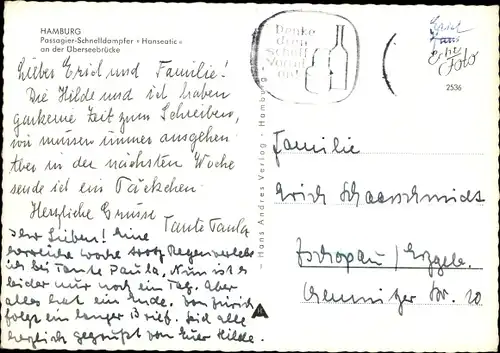 HAMBURG
Passagier-Schnelldampfer «Hanseatic»
an der Überseebrücke
Liebes Erich und Familie!
Die Hilde und ich haben
garkeine Zeit zum Schreiben,
wir müssen immer ausgehen.
Aber in der nächsten Woche
sende ich ein Päckchen.
Herzliche Grüsse
Tante Paula
Ihr Lieben! Eine
herrliche Woche trotz Regen verlebte
ich bei Tante Paula. Nun ist es
leider nur noch ein Tag. Aber
alles hat ein Ende. Von Zürich
folgt ein langer Brief. Seid alle
herzlich gegrüßt von Euer Hilde.
– Hans Andres Verlag - Hamburg -
Denke
dran
schnell
Vorrat
Echt
Foto
2536
Familie
Erich Schaarschmidt
Zschopau/Erzgeb.
Chemnitzer Str. 20